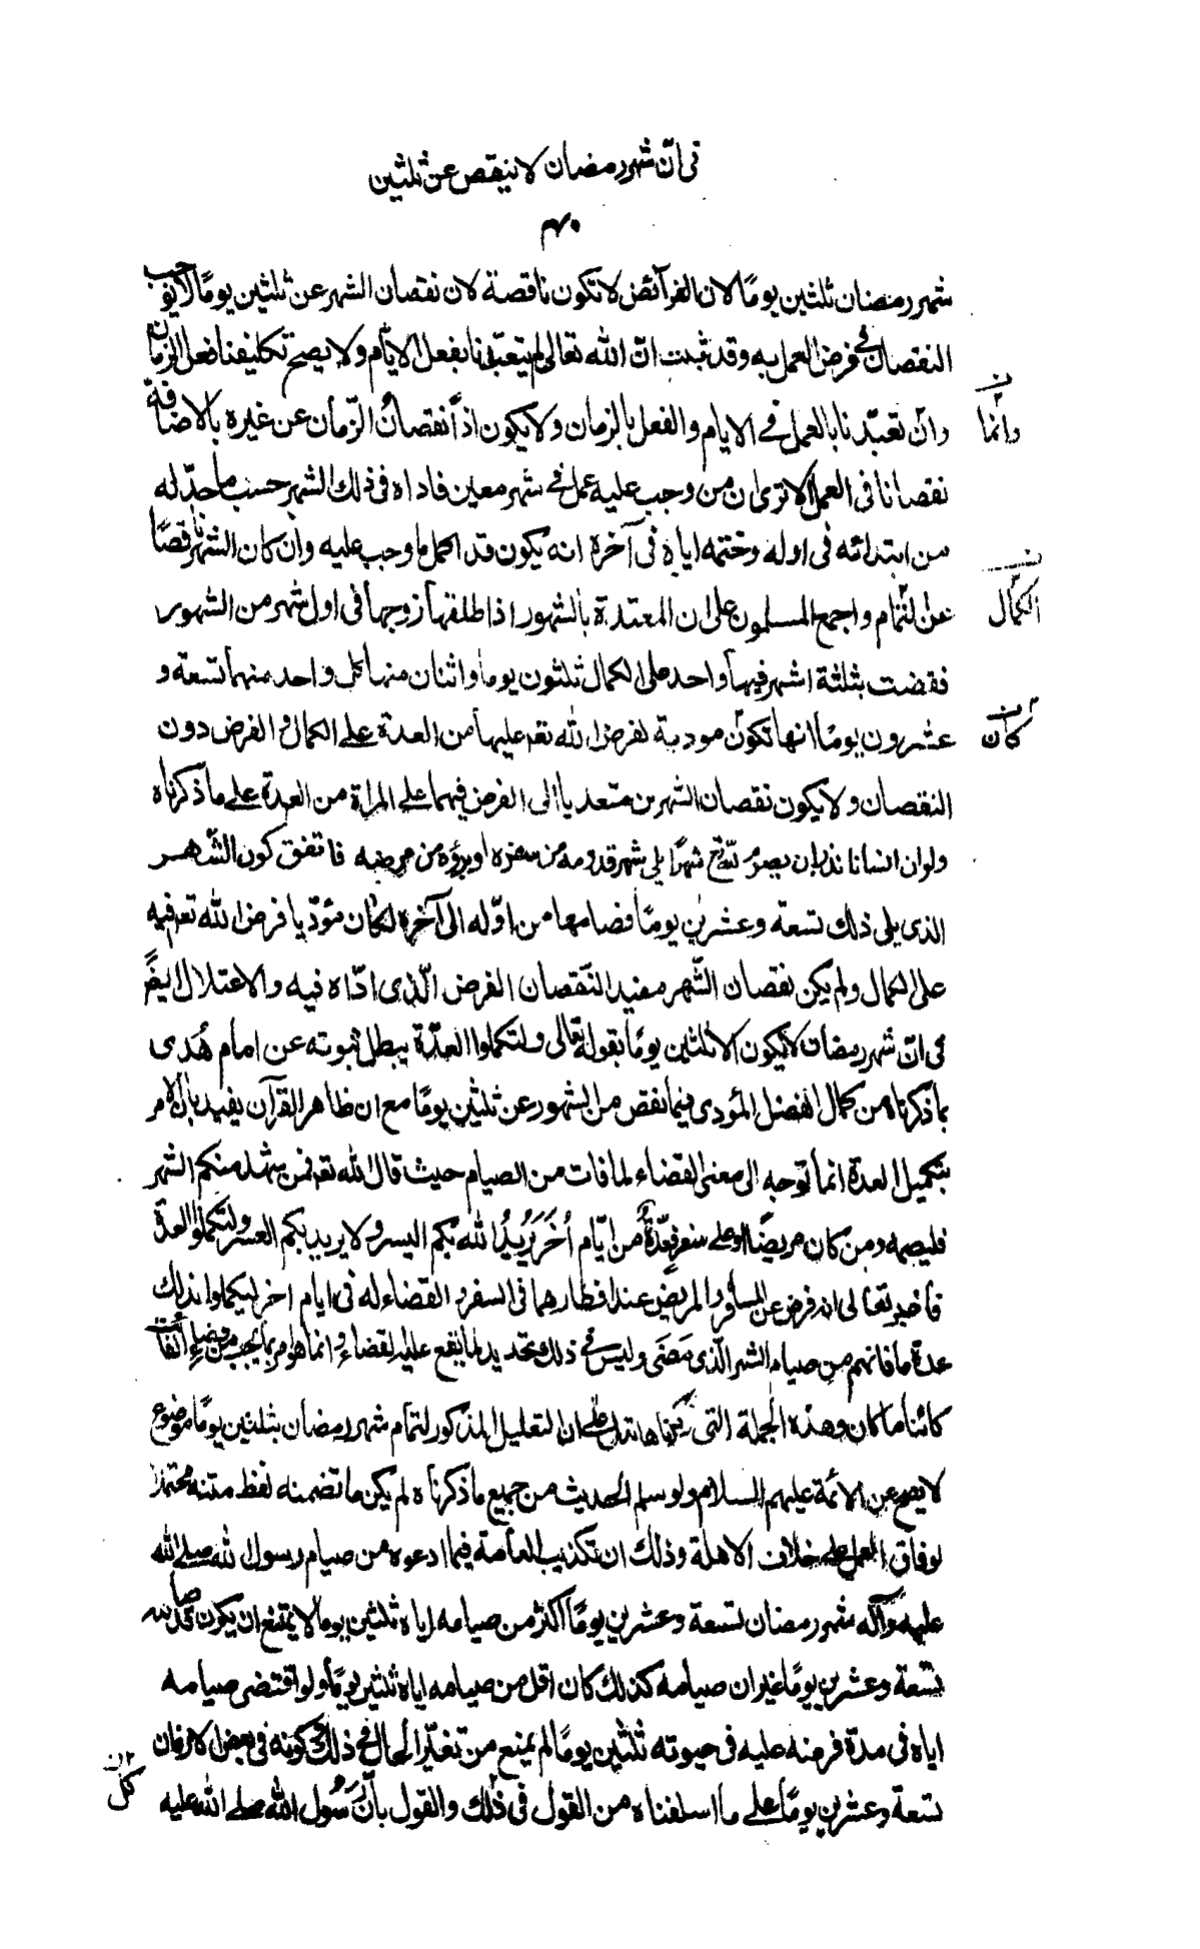 فى انّ شهر رمضان لا ينقص عن ثلثين
شهر رمضان ثلثين يومًا لان الفرآئض لا تكون ناقصة لان نقصان الشهر عن ثلثين يومًا لا يوجب
النقصان فى فرض العمل به وقد ثبت انّ الله تعالى لم يتعبّدنا بفعل الايّام ولا يصح تكليفنا فعل الزمان
وانّ تعبّدنا بالعمل فى الايام والفعل بالزمان ولا يكون اذاً نقصانُ الزّمان عن غيره بالاضافة
وانّما
نقصانا فى العمل الا ترى ان من وجب عليه عمل فى شهر معين فاداه فى ذلك الشهر حسب ما حدّ له
من ابتدائه فى اوله وختمه اياه فى آخره انه يكون قد اكمل ما وجب عليه وان كان الشهر ناقصًا
عن التّمام واجمع المسلمون على ان المعتدة بالشهور اذا طلقها زوجها فى اول شهر من الشهور
الكمال
فقضت بثلثة اشهر فيها واحد على الكمال ثلثون يوما واثنان منها كل واحد منهما تسعة و
عشرون يومًا انها تكون مودية لفرض الله تعه عليها من العدة على الكمال والفرض دون
كان
النقصان ولا يكون نقصان الشهرين متعديا الى الفرض فيهما على المراة من العدة على ما ذكرناه
ولو ان انسانا نذر ان يصوم لله تع شهرًا يلى شهر قدومه من سفره او برؤه من مرضه فاتفق كون الشّهر
الذى يلى ذلك تسعة وعشرين يومًا فصامها من اوّله الى آخره لكان مؤدّيا فرض الله تعه فيه
على الكمال ولم يكن نقصان الشّهر مفيد النّقصان الفرض الّذى ادّاه فيه والاعتلال ايضًا
فى انّ شهر رمضان لا يكون الا ثلثين يومًا بقوله تعالى ولتكملوا العدّة يبطل ثبوته عن امام هُدى
بما ذكرناه من كمال الفضل المؤدى فيما نقص من الشهور عن ثلثين يومًا مع ان ظاهر القرآن يفيد بان الامر
بتكميل العدة انما توجه الى معنى القضاء لما فات من الصيام حيث قال الله تعه فمن شهد منكم الشهر
فليصمه ومن كان مريضًا او على سفر فعِدّةٌ من ايّام أُخَرَ يُرِيدُ الله بكم اليسر ولا يريد بكم العسر ولتكملوا العدة
فاخبر تعالى انه فرض عن المسافر والمريض عند افطارهما فى السفر القضاء له فى ايام اخر ليكملوا بذلك
عدة ما فاتهم من صيام الشهر الّذى مَضَى وليس فى ذلك تحديد لما يقع عليه القضاء وانما هو امر بما يجب من قضاءِ الفآئت
كائنا ما كان وهذه الجملة التى ذكرناها تدل على ان التعليل المذكور لتمام شهر رمضان بثلثين يومًا موضوع
لا يصح عن الائمة عليهم السلام ولو سلم الحديث من جميع ما ذكرناه لم يكن ما تضمنه لفظ متنه محتملا
لوفاق العمل على خلاف الاهلة وذلك ان تكذيب العامة فيما ادعوه من صيام رسول الله صلى الله
عليه وآله شهر رمضان تسعة وعشرين يومًا اكثر من صيامه اياه ثلثين يوما لا يمتنع ان يكون قد صامه
تسعة وعشرين يومًا غير ان صيامه كذلك كان اقل من صيامه اياه ثلثين يومًا ولو اقتضى صيامه
اياه فى مدة فرضه عليه فى حيوته ثلثين يومًا لم يمنع من تغيّر الحال فى ذلك وكونه فى بعض الازمان
تسعة وعشرين يومًا على ما اسلفناه من القول فى ذلك والقول بانّ رَسُول الله صلى الله عليه
كل